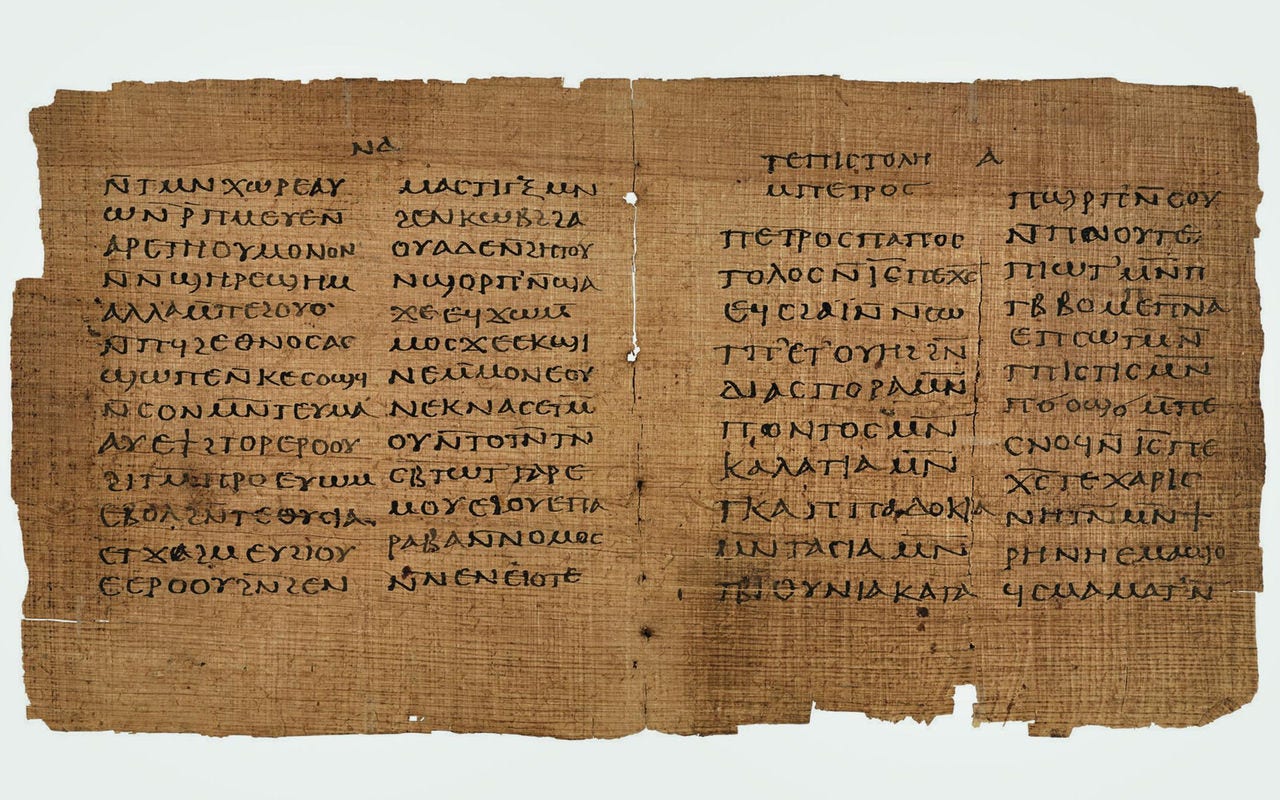 ⲛⲁ
ⲛ̅ⲧⲙⲛⲭⲱⲣⲉⲁⲩ
ⲱⲛⲣ̅ⲡⲙⲉⲩⲉⲛ̅
ⲁⲣⲉⲧⲏⲟⲩⲙⲟⲛⲟⲛ
ⲛ̅ⲛϣⲏⲣⲉϣⲏⲙ
ⲁⲗⲗⲁⲙ̅ⲡⲉϩⲟⲩⲟ
ⲛ̅ⲡϥϩⲉⲑⲛⲟⲥⲁⲥ
ϣⲱⲡⲉⲛ̅ⲕⲉⲥⲟϣϥ
ⲛ̅ⲥⲟⲛⲙⲛ̅ⲧⲉⲩⲙⲁ
ⲁⲩⲉϯϩⲧⲟⲣⲉⲣⲟⲟⲩ
ϩⲓⲧⲙ̅ⲡⲣⲣⲟⲉⲩⲱⲙ
ⲉⲃⲟⲗϩⲛⲧⲉⲑⲩⲥⲓⲁ
ⲉⲧϫⲁϩⲙⲉⲩϩⲓⲟⲩ
ⲉⲉⲣⲟⲟⲩϩⲛϩⲉⲛ
ⲙⲁⲥⲧⲓⲅⲝⲙⲛ
ϩⲉⲛⲕⲱⲃϩϩⲁ
ⲟⲩⲁⲇⲉⲛϩⲏⲧⲟⲩ
ⲛϣⲟⲣⲡ̅ⲛ̅ϣⲁ
ϫⲉⲉϥϫⲱⲙ̅
ⲙⲟⲥϫⲉⲉⲕϣⲓ
ⲛⲉⲙ̅ⲙⲟⲛⲉⲟⲩ
ⲛⲉⲕⲛⲁⲥⲉⲧⲙ̅
ⲟⲩⲛ̅ⲧⲟⲧⲛ̅ⲧⲛ̅
ⲥⲃⲧⲱⲧⲅⲁⲣⲉ
ⲙⲟⲩⲉϩⲟⲩⲉⲡⲁ
ⲣⲁⲃⲁⲛⲛⲟⲙⲟⲥ
ⲛ̅ⲛⲉⲛⲉⲓⲟⲧⲉ
ⲧⲉⲡⲓⲥⲧⲟⲗⲏ ⲁ
ⲙⲡⲉⲧⲣⲟⲥ
ⲡⲉⲧⲣⲟⲥⲡⲁⲡⲟⲥ
ⲧⲟⲗⲟⲥⲛ̅ⲓ̅ⲥ̅ⲡⲉⲭ̅ⲥ̅
ⲉϥⲥϩⲁⲓ̈ⲛ̅ⲛⲥⲱ
ⲧⲡ̅ⲉⲧⲟⲩⲏϩϩⲛ
ⲇⲓⲁⲥⲡⲟⲣⲁⲙⲛ̅
ⲡⲟⲛⲧⲟⲥⲙⲛ̅
ⲕⲁⲗⲁⲧⲓⲁⲙⲛ̅
ⲧⲕⲁⲧⲡⲁⲇⲟⲕⲓⲁ
ⲙⲛⲧⲁⲥⲓⲁⲙⲛ̅
ⲧⲃⲓⲑⲩⲛⲓⲁⲕⲁⲧⲁ
ⲡϣⲣⲡ̅ⲛ̅ⲥⲟⲩ
ⲛ̅ⲡⲛⲟⲩⲧⲉ
ⲡⲓⲱⲧⲙⲛ̅ⲡ
ⲧⲃⲃⲟⲙⲉⲡ̅ⲛ̅ⲁ̅
ⲉⲡⲥⲱⲧⲙⲛ̅
ⲧⲡⲓⲥⲧⲓⲥⲙⲛ̅
ⲡϭⲟϣϭ̅ⲙⲡⲉ
ⲥⲛⲟϥⲛ̅ⲓ̅ⲥ̅ⲡⲉ
ⲭ̅ⲥ̅ⲧⲉⲭⲁⲣⲓⲥ
ⲛⲏⲧⲛ̅ⲙⲛϯ
ⲣⲏⲛⲏⲉⲙⲁϣⲟ
ϥⲥⲙⲁⲙⲁⲧⲛ̅